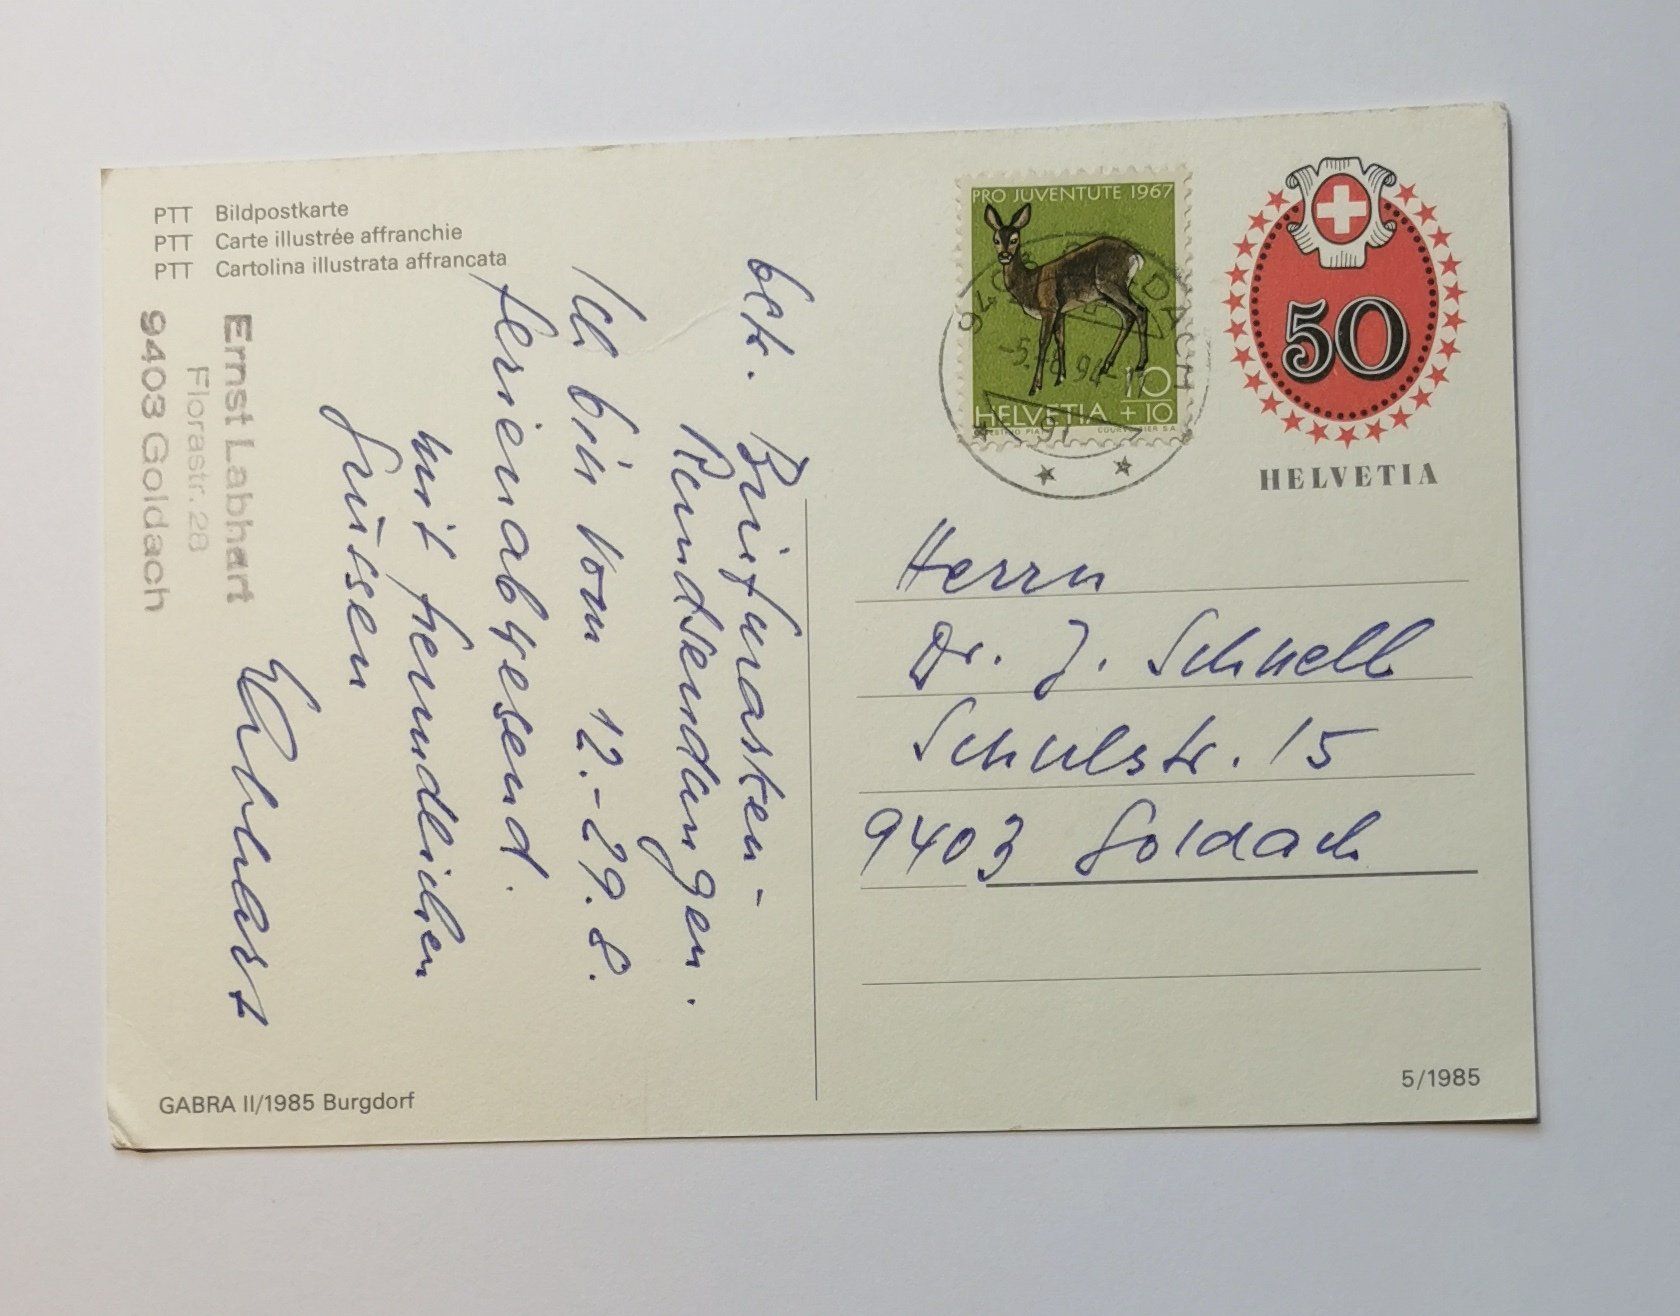 PTT Bildpostkarte
PTT Carte illustrée affranchie
PTT Cartolina illustrata affrancata
Ernst Labhart
Florastr. 28
9403 Goldach
betr. Briefmarken-
Rundsendungen.
Ich bin vom 12.-29. 8.
ferienabwesend.
mit freundlichen
Grüssen
ELabhart
GABRA II/1985 Burgdorf
PRO JUVENTUTE 1967
10
HELVETIA +10
COURVOISIER S A
50
HELVETIA
Herrn
Dr. J. Schnell
Schulstr. 15
9403 Goldach
5/1985